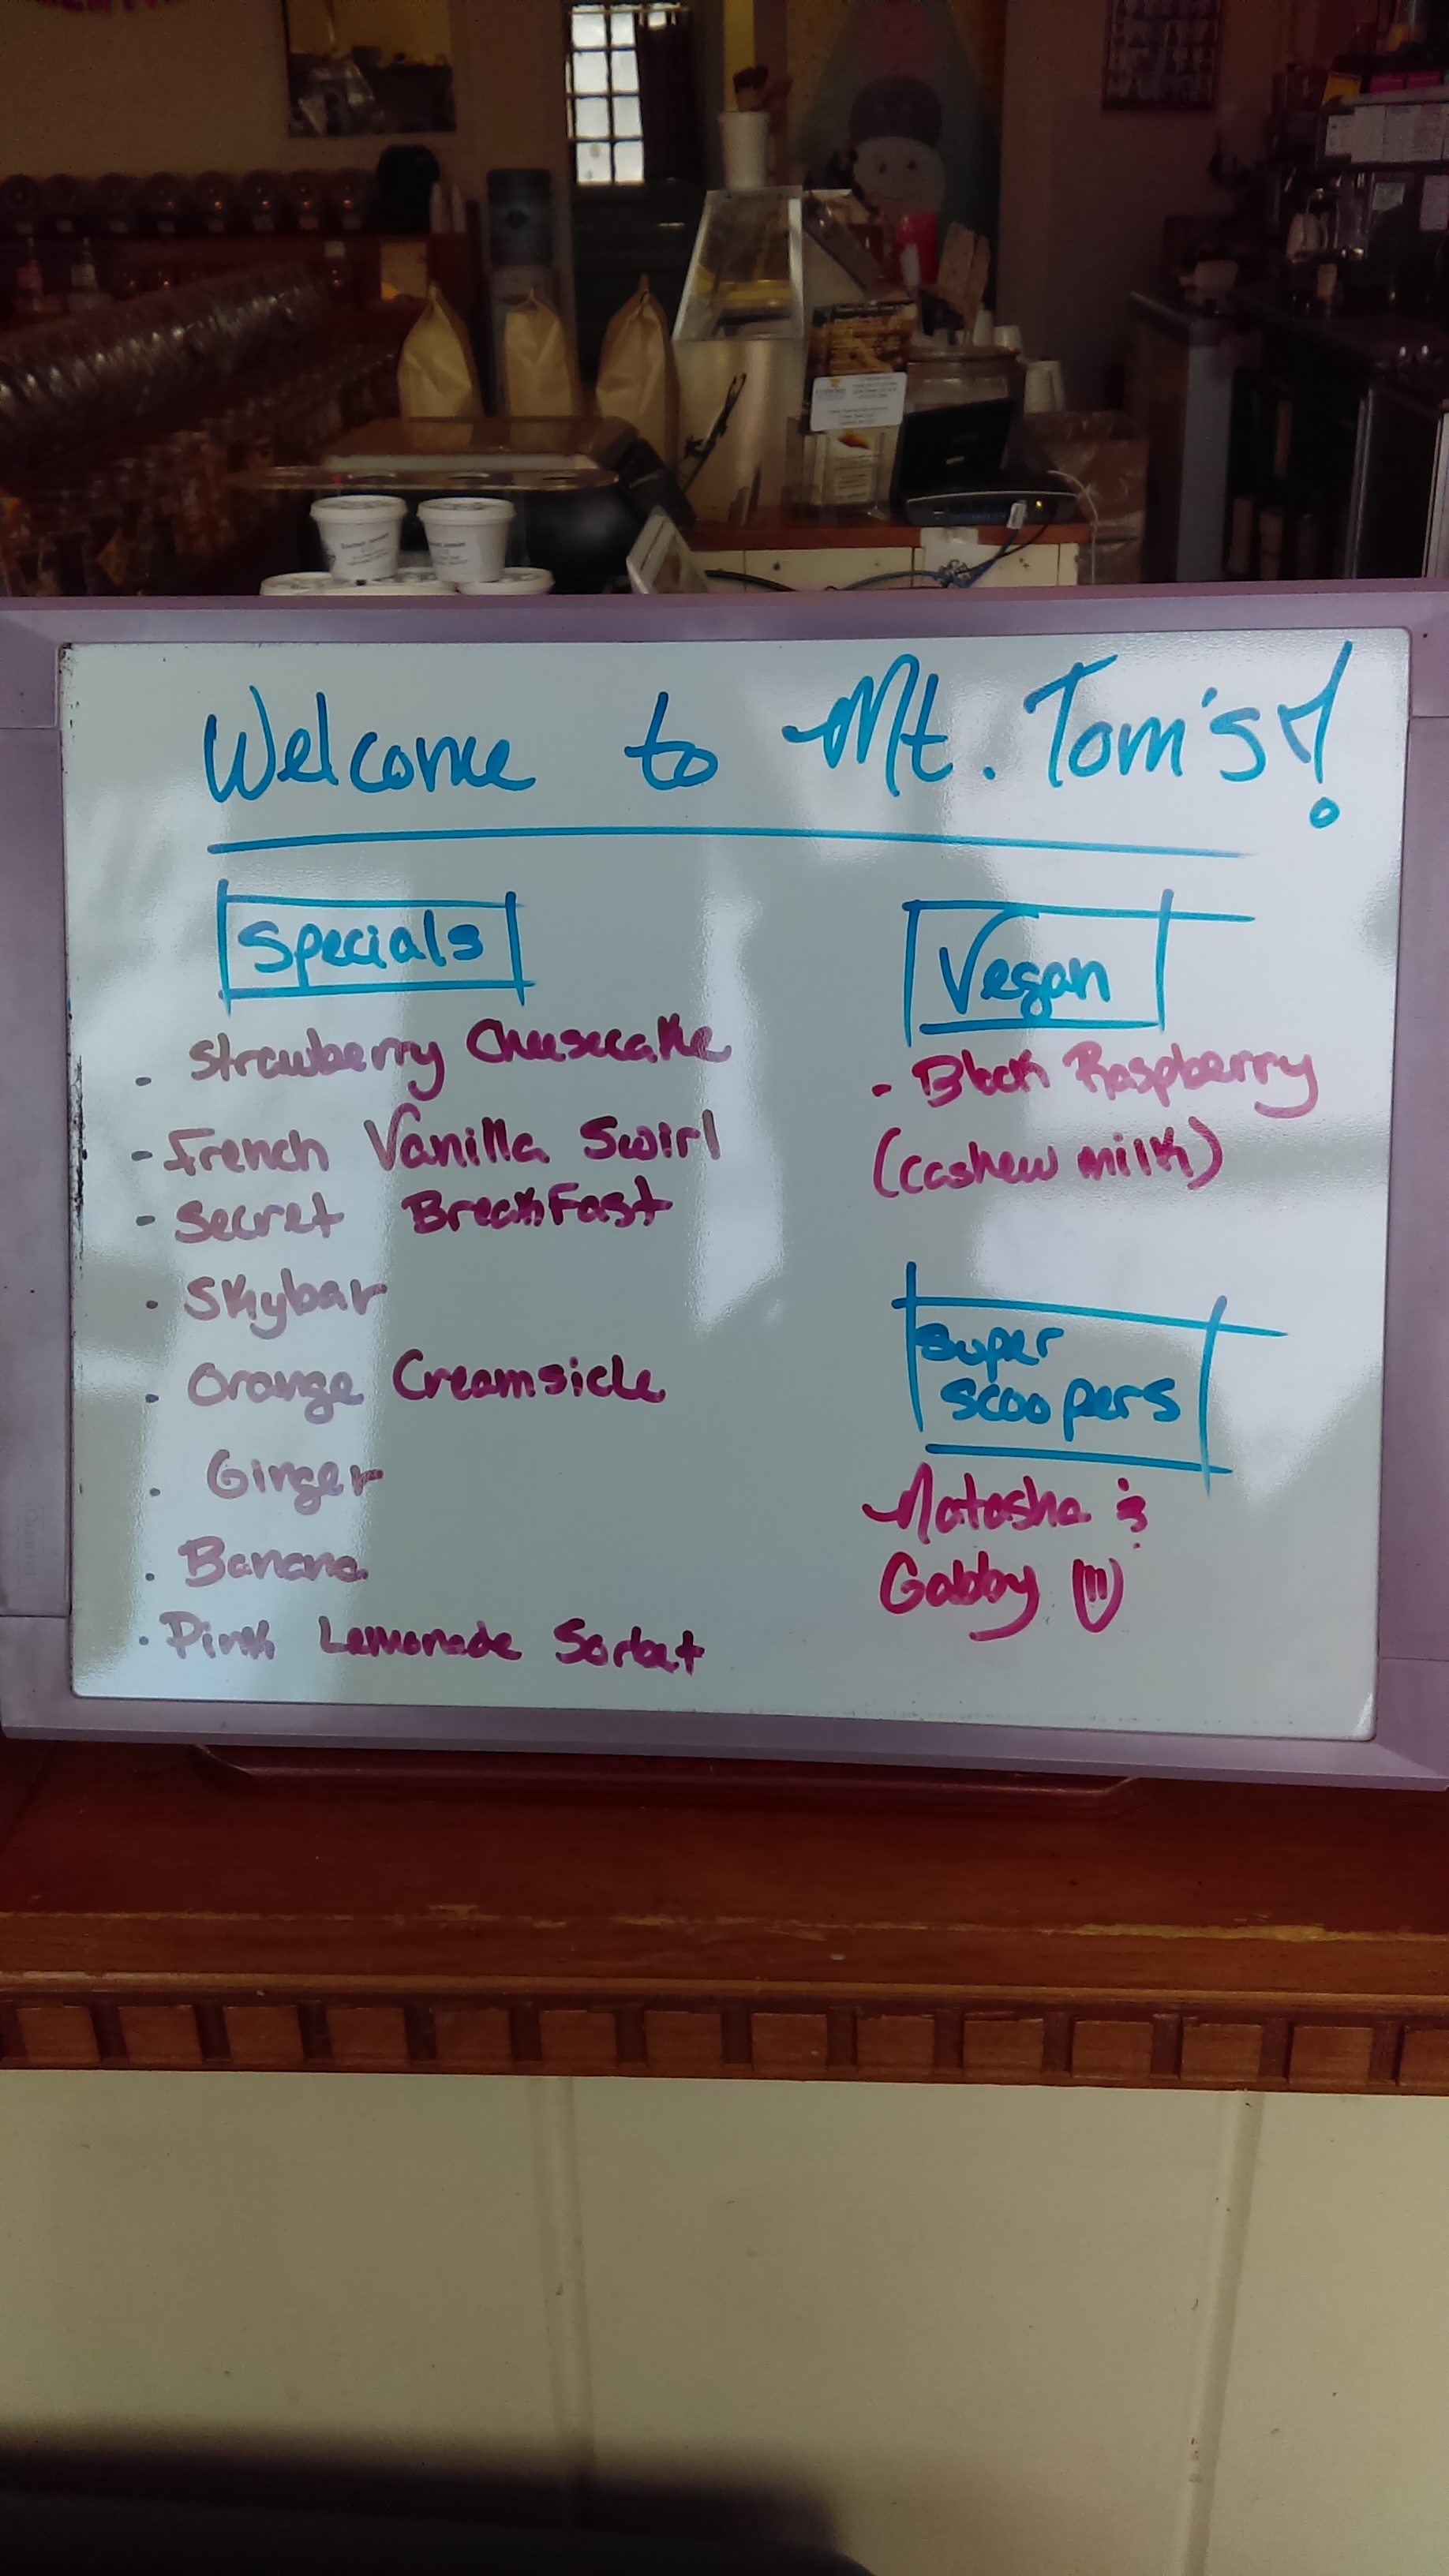 Welcome to Mt. Tom's!
Specials
- Strawberry Cheesecake
- French Vanilla Swirl
- Secret BreakFast
- Skybar
- Orange Creamsicle
- Ginger
- Banana
- Pink Lemonade Sorbet
Vegan
- Black Raspberry
(cashew milk)
Super
Scoopers
Natasha &
Gabby